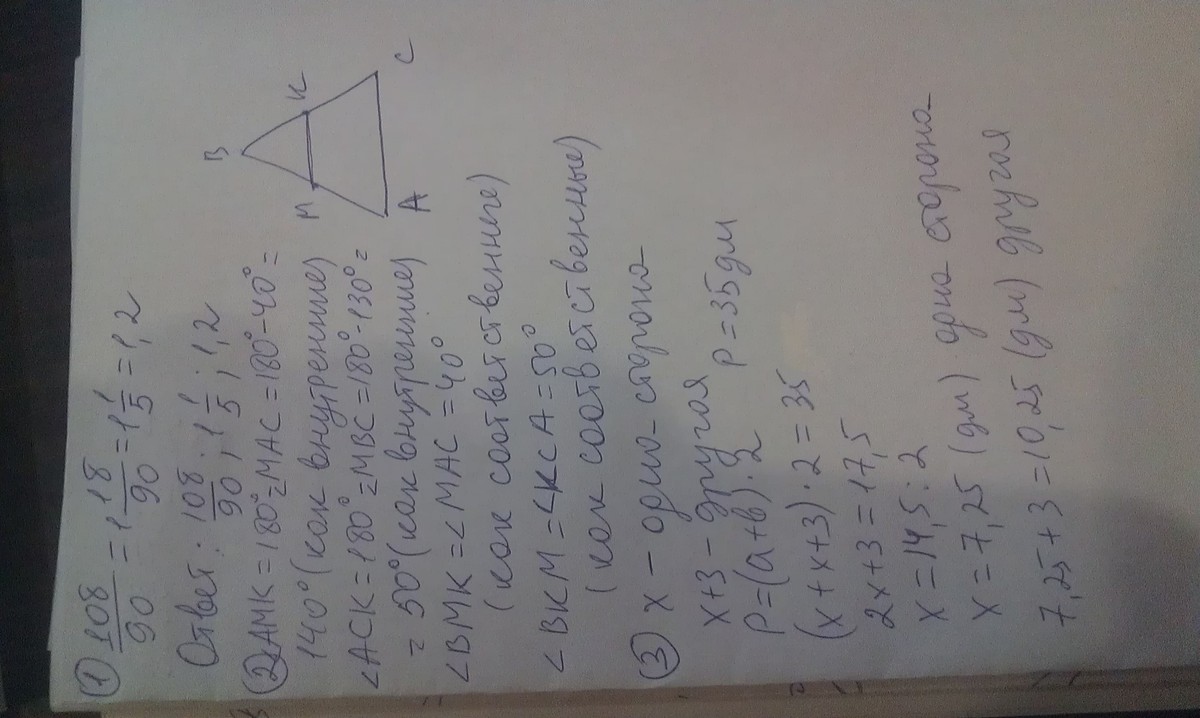 ① 108/90 = 1 18/90 = 1 1/5 = 1,2
Ответ: 108/90; 1 1/5; 1,2
② ∠AMK = 180°-MAC = 180°-40° =
140° (как внутренние)
∠ACK = 180° = MBC = 180°-130° =
= 50° (как внутренние)
∠BMK = ∠MAC = 40°
(как соответственние)
∠BKM = ∠KCA = 50°
(как соответственные)
B
M
K
A
C
③ x - одна сторона
x+3 - другая
P=(a+b)·2 P=35дм
(x+x+3)·2=35
2x+3=17,5
x=14,5:2
x=7,25 (дм) одна сторона
7,25+3=10,25 (дм) другая